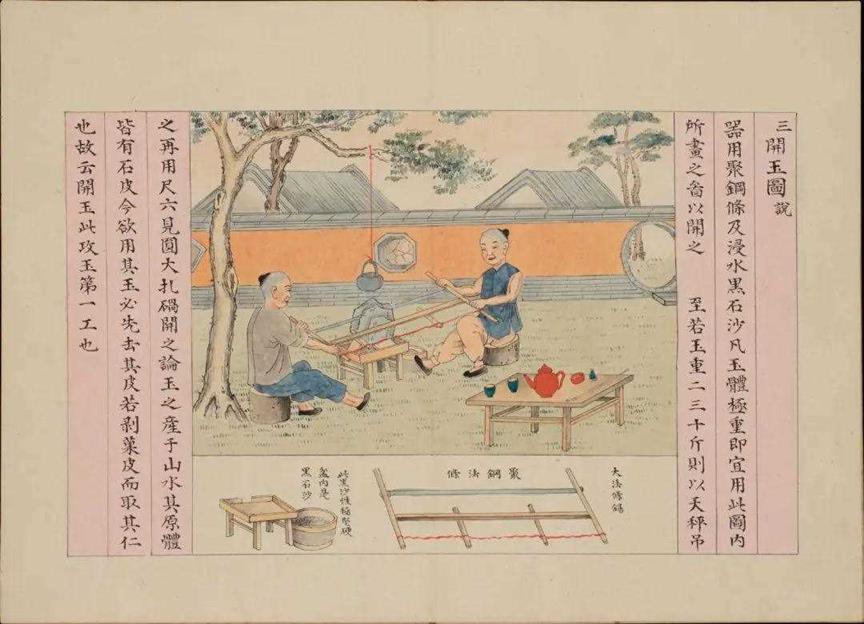 三開玉圖說
器用聚鋼條及浸水黑石沙凡玉體極重即宜用此圖內
所畫之畚以開之　至若玉重二三十斤則以天秤吊
之再用尺六見圓大扎碢開之論玉之產于山水其原體
皆有石皮今欲用其玉必先去其皮若剥菓皮而取其仁
也故云開玉此攻玉第一工也
大法條鋸
聚鋼法條
此黑沙性極堅硬
盆內是
黑石沙